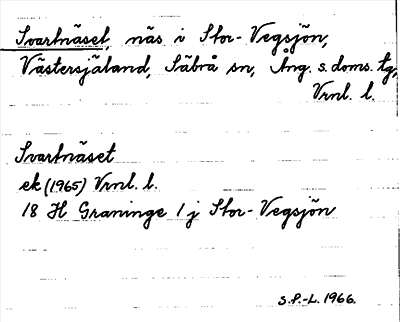 Svartnäset, näs i Stor-Vegsjön,
Västersjäland, Säbrå sn, Ång. s. doms. tg,
Vrnl. l.
Svartnäset
ek (1965) Vrnl. l.
18 H Graninge 1 j Stor-Vegsjön
S.P.-L. 1966.